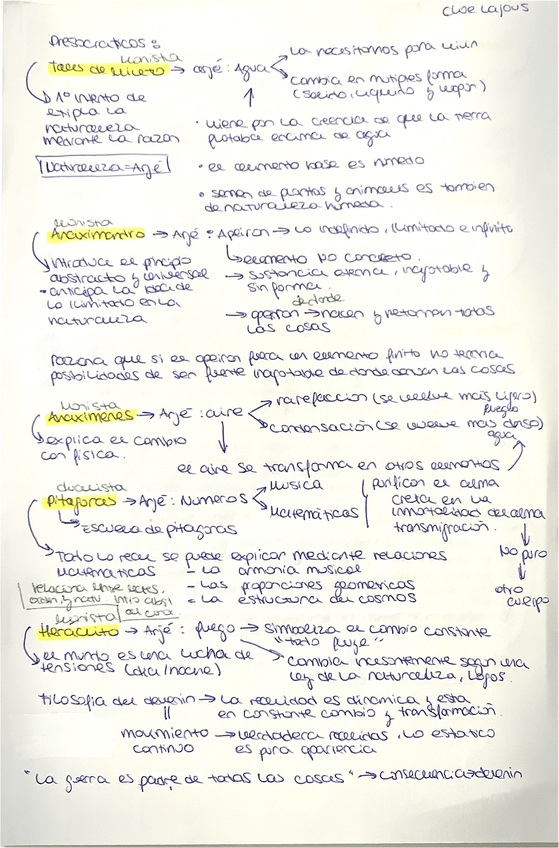 Cloe Lajous
Presocraticos:
Monista
Tales de Mileto → arjé: Agua
La necesitamos para vivir
cambia en mutiples forma
(solido, liquido y vapor)
↳ 1º intento de
explica la
naturaleza
mediante la razon
Naturaleza = Arjé
• viene por la creencia de que la tierra
flotaba encima de agua
• el elemento base es humedo
• semen de plantas y animales es tambien
de naturaleza humeda.
Monista
Anaximandro → Arjé: Apeiron → Lo indefinido, ilimitado e infinito
↳ elemento No concreto.
→ sustancia eterna, inagotable y
sin forma.
de donde
→ apeiron → nacen y retornan todas
las cosas
Introduce el principio
abstracto y universal
• anticipa la idea de
lo ilimitado en la
naturaleza
Razona que si el apeiron fuera un elemento finito no tendria
posibilidades de ser fuente inagotable de donde surgen las cosas
Monista
Anaximenes → Arjé: aire
rarefaccion (se vuelve mas ligero)
fuego
condensación (se vuelve mas denso)
agua
explica el cambio
con fisica.
el aire se transforma en otros elementos
dualista
Pitagoras → Arjé: Numeros
Musica
Matemáticas
purifican el alma
creia en la
inmortalidad del alma
transmigración.
↓
No puro
↓
otro
cuerpo
↳ Escuela de pitagoras
Todo lo real se puede explicar mediante relaciones
Matematicas
- La armonia musical
- Las proporciones geometricas
- La estructura del cosmos
relaciona entre seres,
orden y natu
intro abst
del cono.
Monista
Heraclito → Arjé: fuego → simboliza el cambio constante
"todo fluye"
cambia incesantemente segun una
ley de la naturaleza, Logos.
el mundo es una lucha de
tensiones (dia/noche)
Filosofia del devenir → La realidad es dinamica y esta
en constante cambio y transformación.
movimiento
continuo
→ verdadera realidad, lo estatico
es pura apariencia
"La guerra es padre de todas las cosas" → consecuencia → devenir